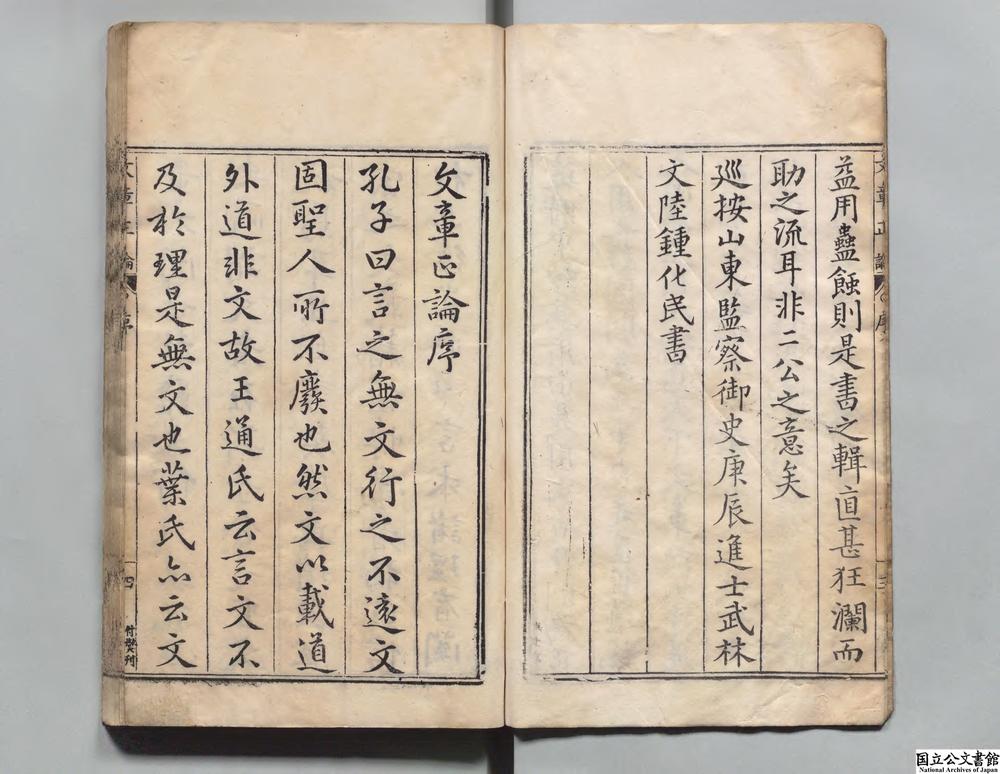 益用蠱蝕則是書之輯直甚狂瀾而
助之流耳非二公之意矣
廵按山東監察御史庚辰進士武林
文陸鍾化民書
文章正論序
孔子曰言之無文行之不遠文
固聖人所不廢也然文以載道
外道非文故王通氏云言文不
及於理是無文也葉氏亦云文
文章正論
序
四
国立公文書館
National Archives of Japan